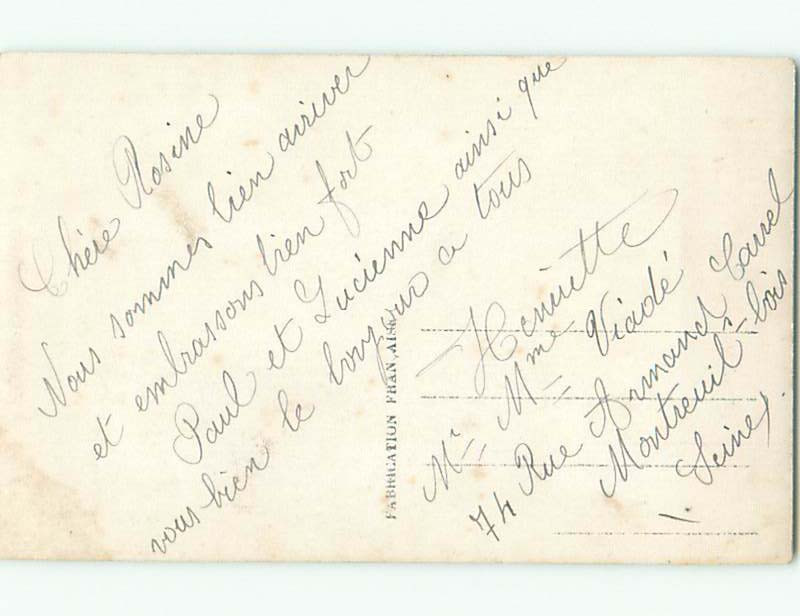 Chère Rosine
Nous sommes bien airiver
et embrassons bien fort
Paul et Lucienne ainsi que
vous bien le bonjour a tous
Henriette
FABRICATION FRANÇAISE
Mr Mme Viadé
74 Rue Armand Carrel
Montreuil-bois
(Seine).